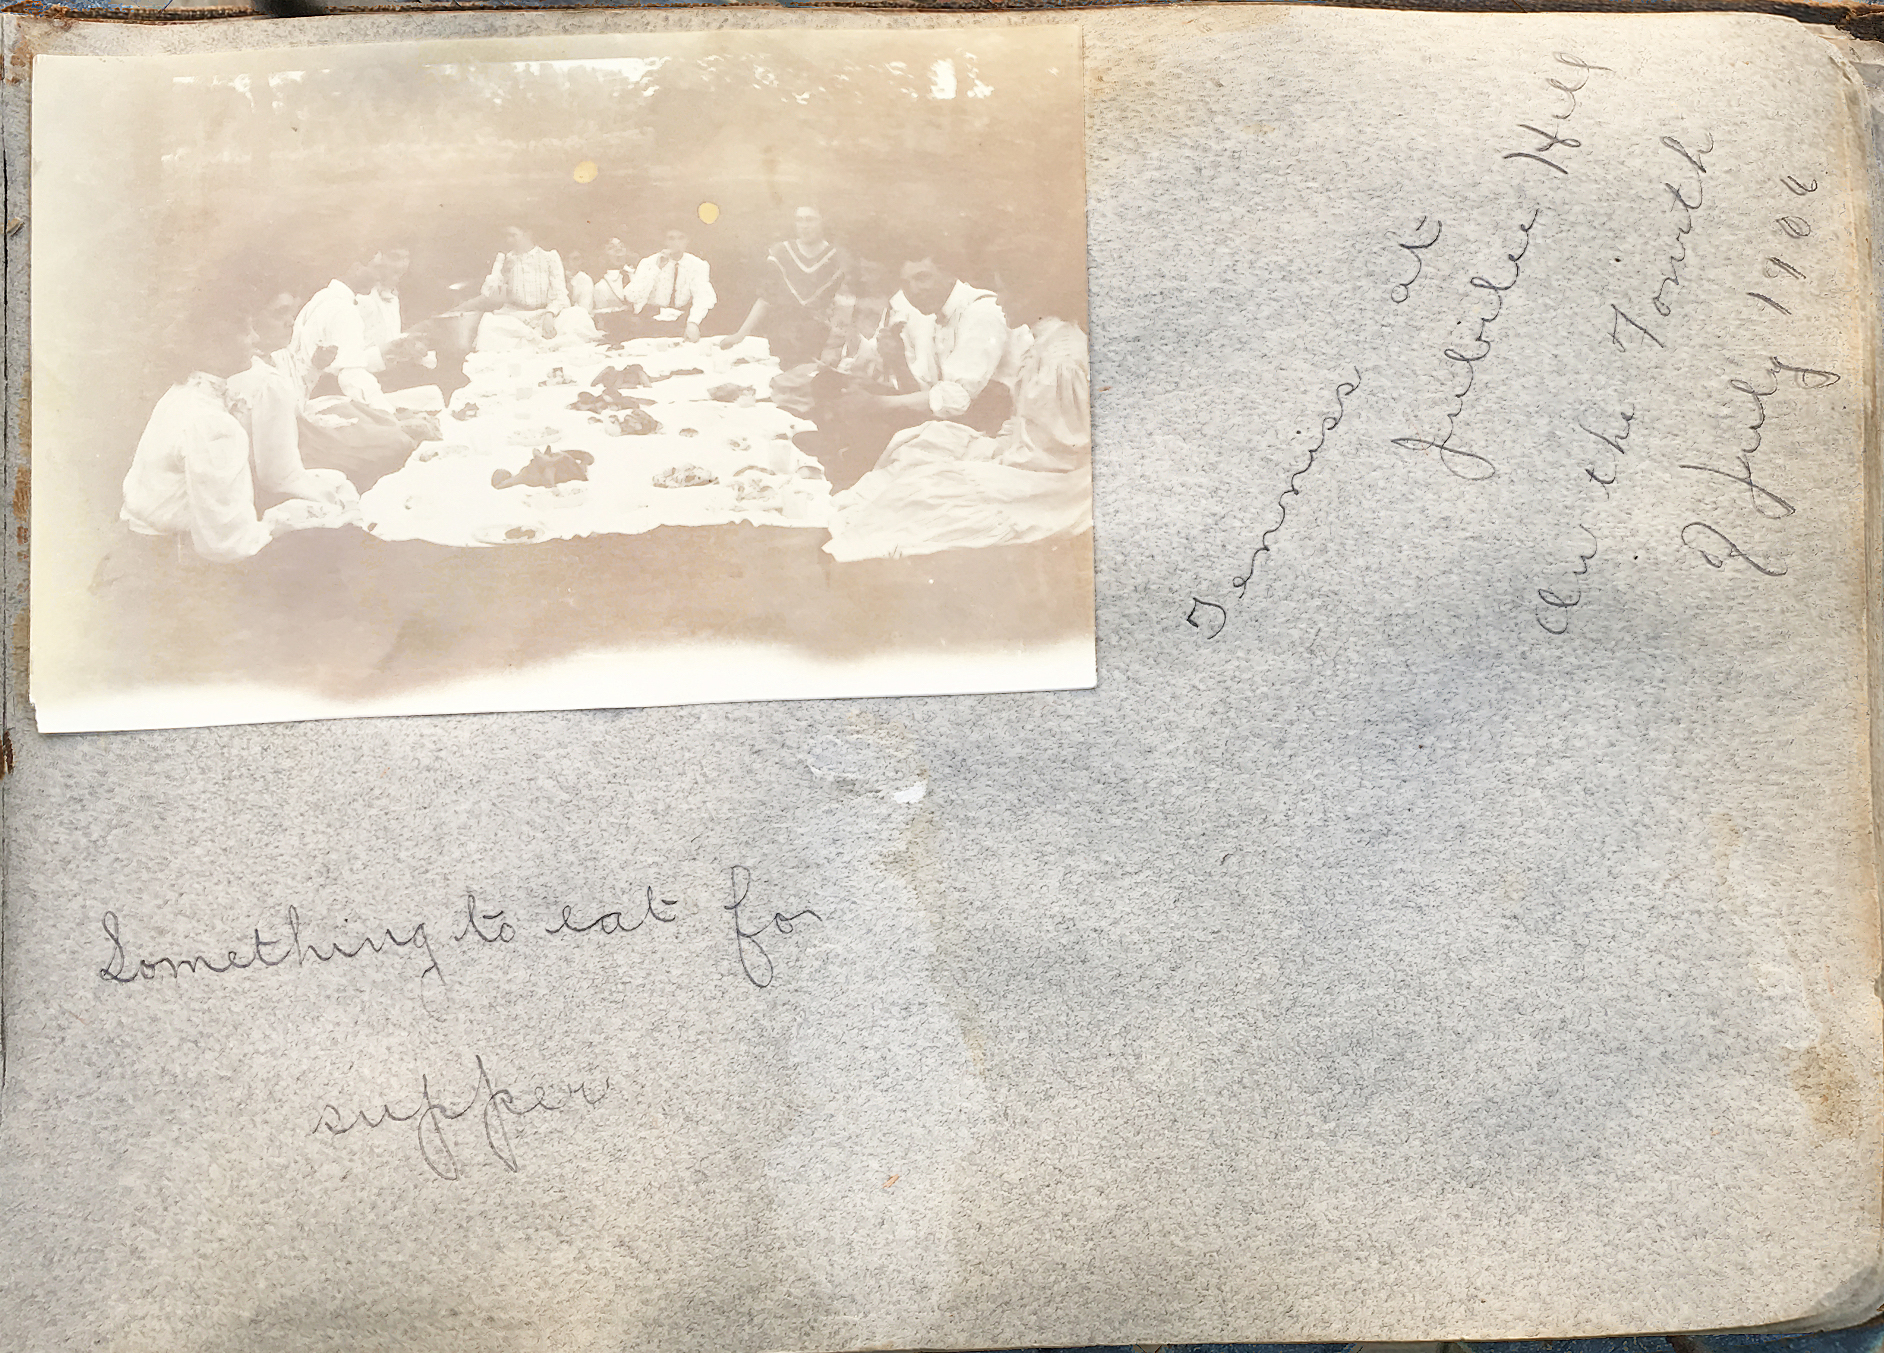 Tenniss at
Jubilee Hill
On the Fourth
of July 1906
Something to eat for
supper